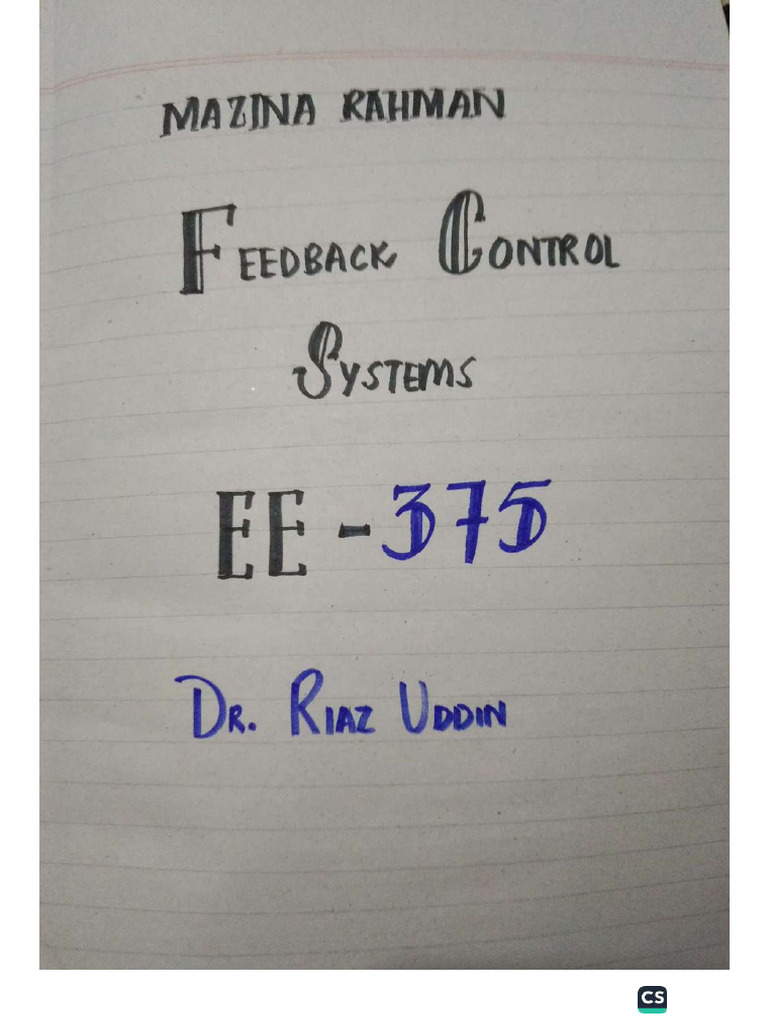 MAZINA RAHMAN
FEEDBACK CONTROL
SYSTEMS
EE - 375
DR. RIAZ UDDIN
CS